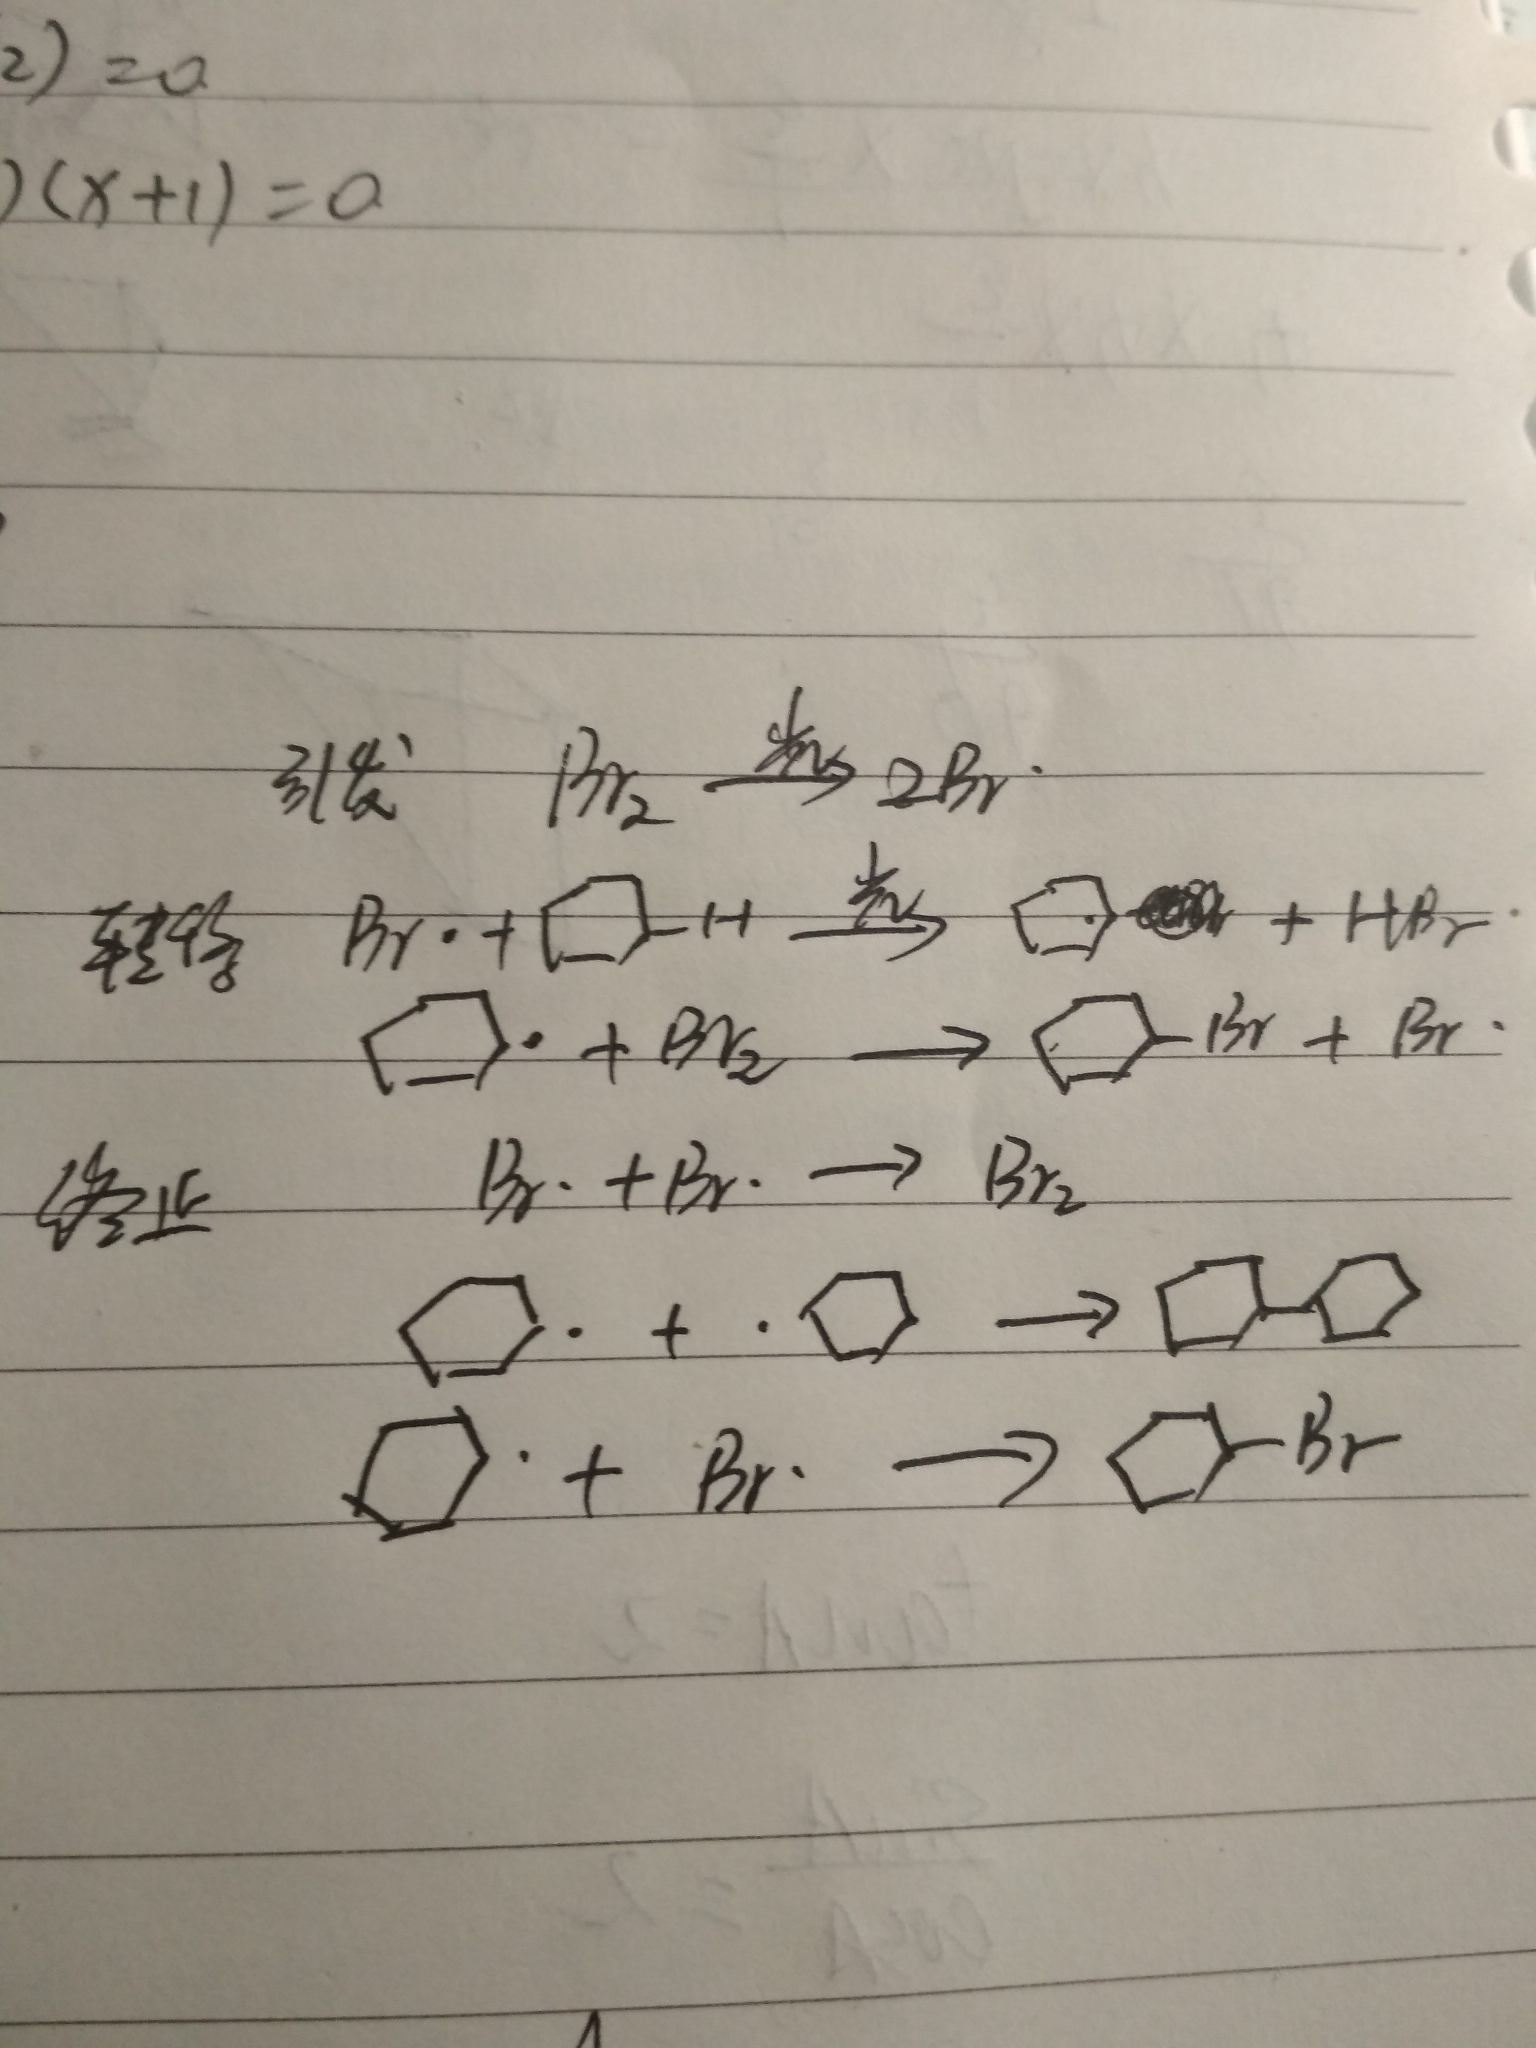 2) =0
)(x+1) =0
引发 Br₂ 光→ 2Br·
转移 Br· + -H 光→ · + HBr
· + Br₂ → -Br + Br·
终止 Br· + Br· → Br₂
· + · → -
· + Br· → -Br